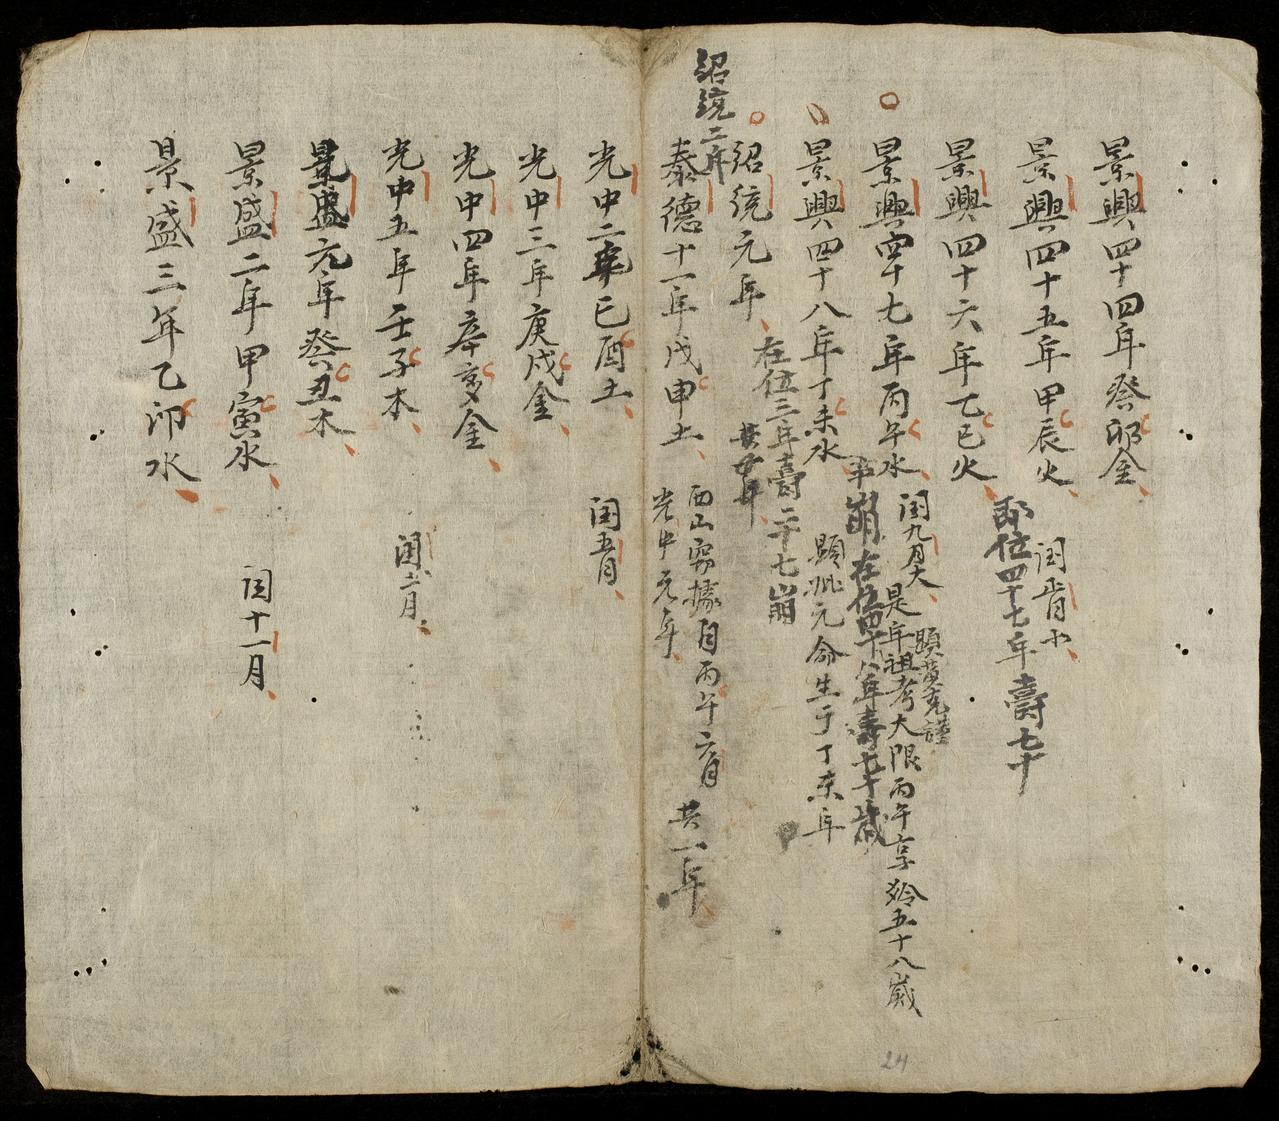 景興四十四年癸卯金
景興四十五年甲辰火
閏三月小
景興四十六年乙巳火
即位四十七年壽七十
景興四十七年丙午水
閏九月大
顯黃克謹
是年祖考大限丙午享齡五十八歲
崩在位四十八年壽七十歲
景興四十八年丁未水
顯妣元命生于丁未年
紹統元年
在位三年壽二十七崩
共廿年
紹統二年
泰德十一年戊申土
西山竊據自丙午六月
光中元年
共一年
光中二年己酉土
閏五月
光中三年庚戌金
光中四年辛亥金
光中五年壬子木
閏二月
景盛元年癸丑木
景盛二年甲寅水
閏十一月
景盛三年乙卯水
24